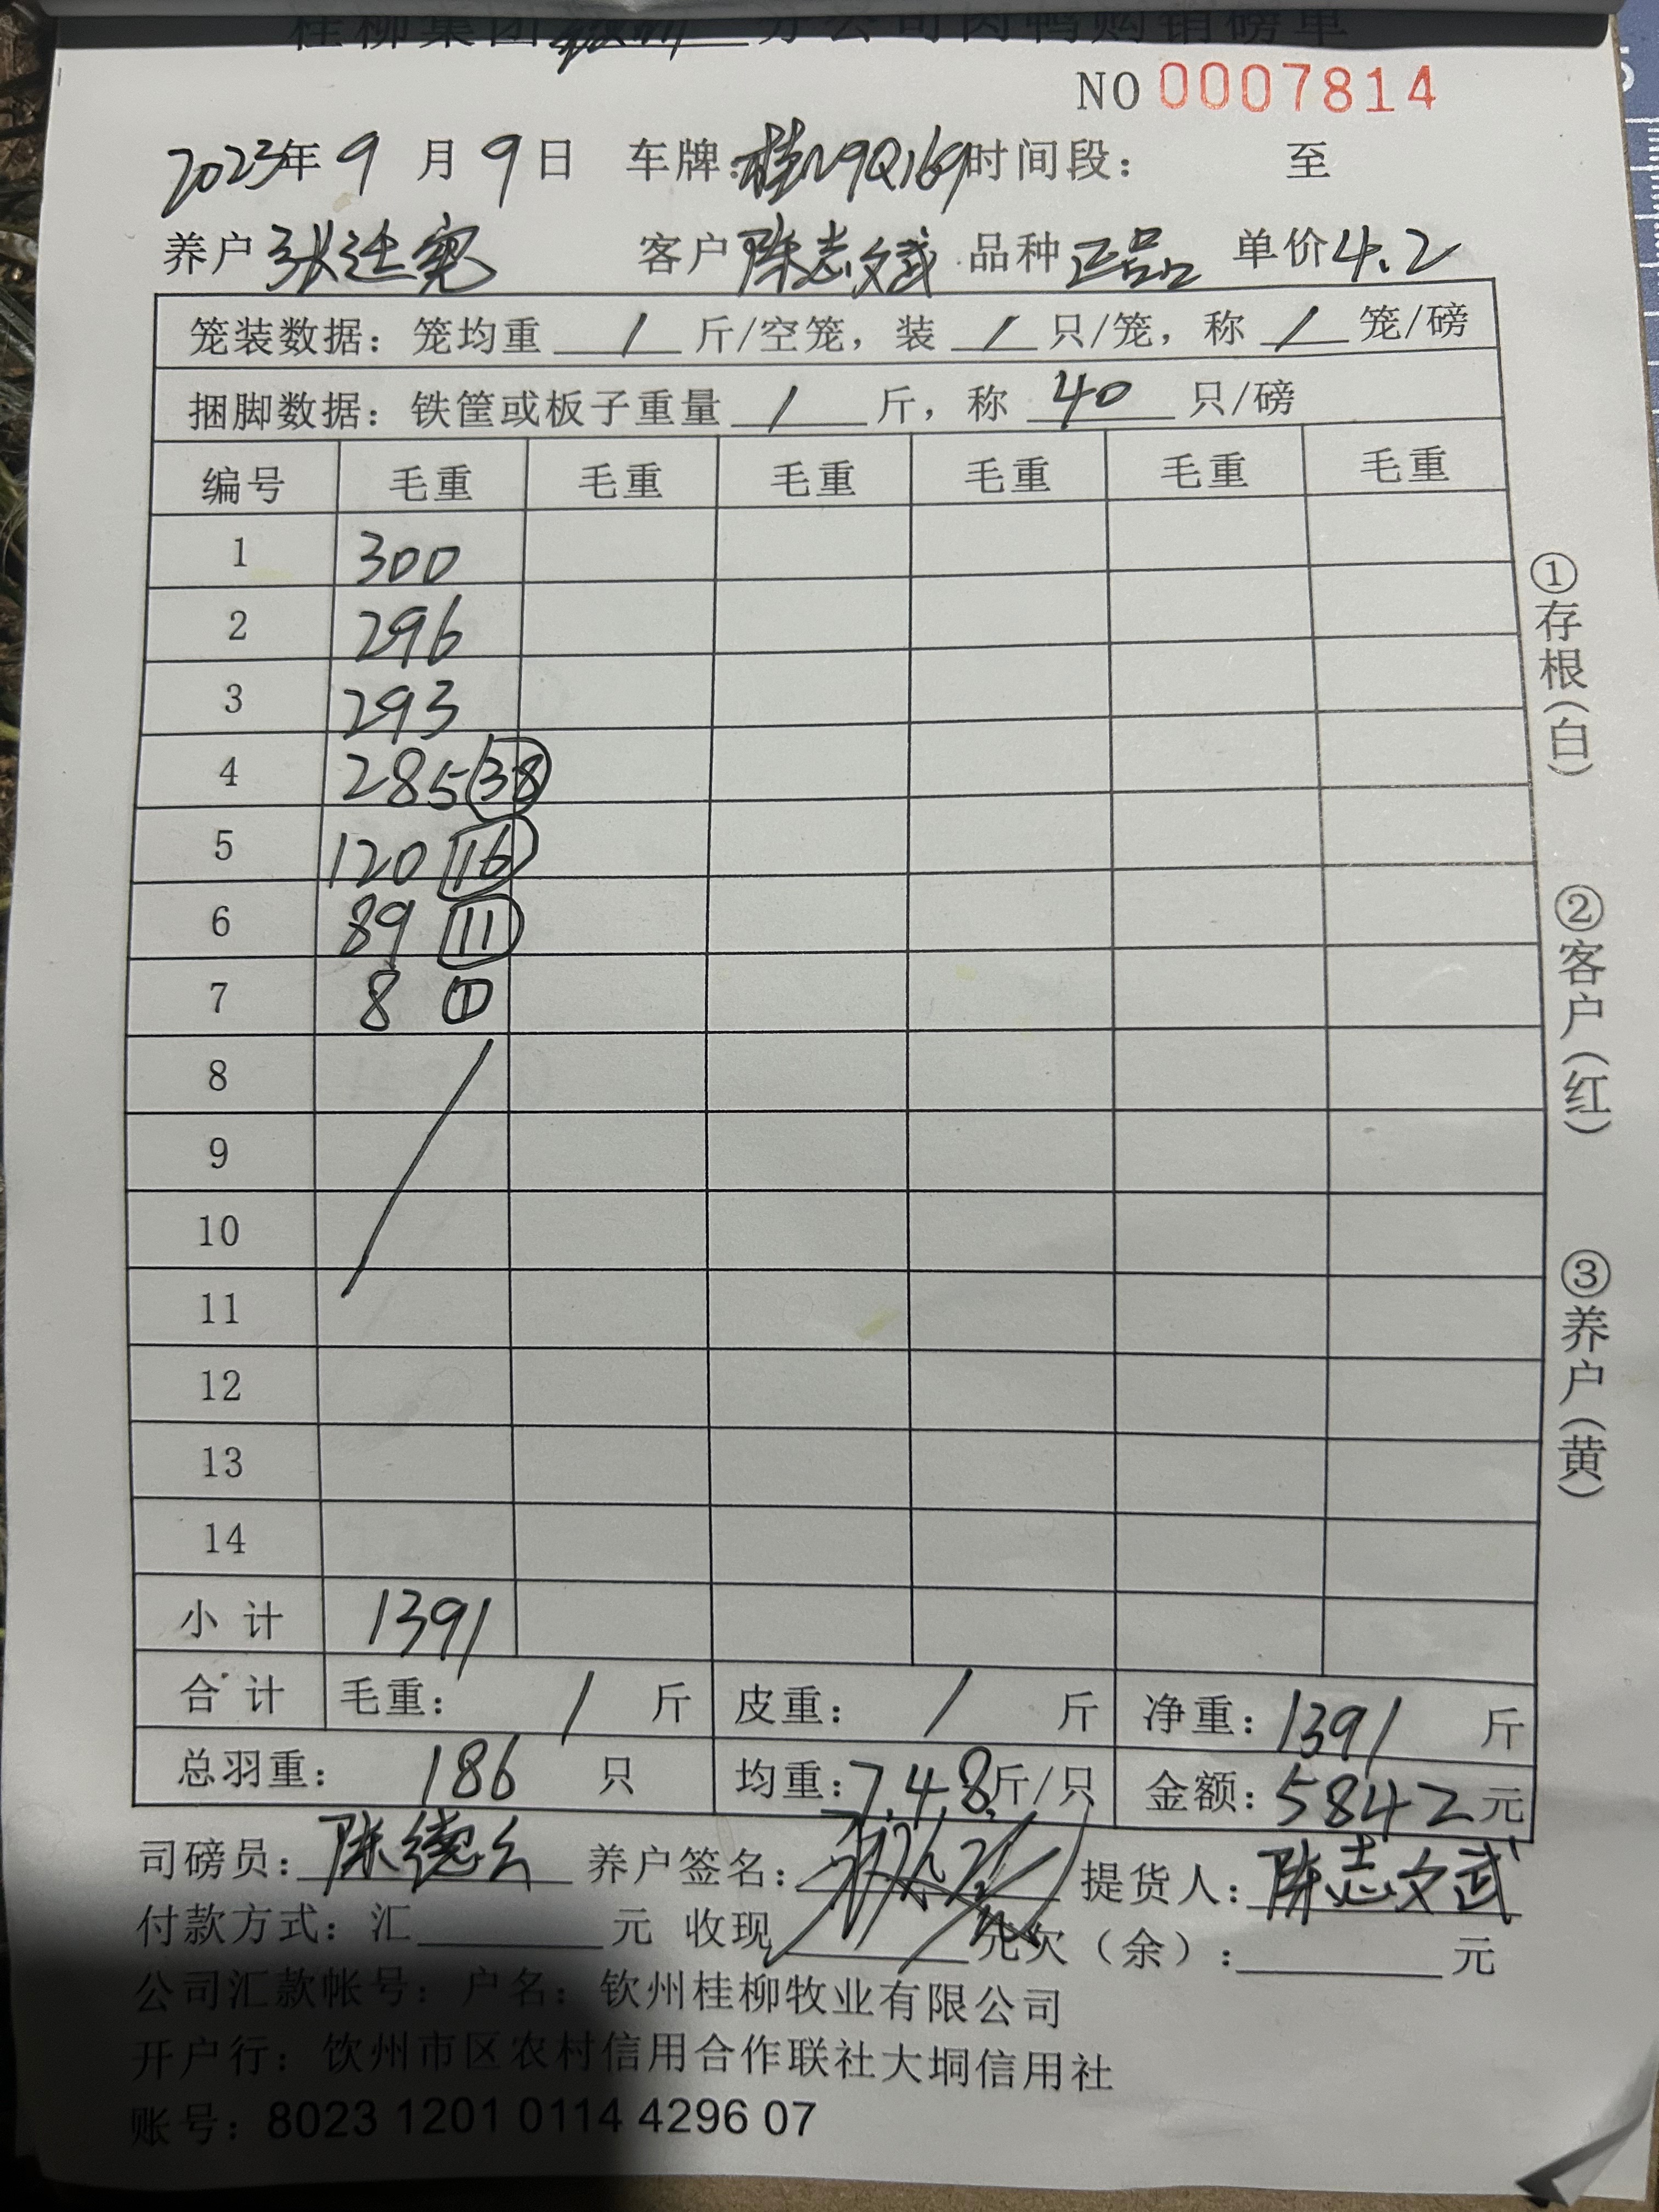 桂柳集团钦州分公司肉鸭购销磅单
NO 0007814
2023年9月9日 车牌:桂N9Q169时间段: 至
养户 客户陈志斌 品种正品 单价4.2
笼装数据: 笼均重 / 斤/空笼, 装 / 只/笼, 称 / 笼/磅
捆脚数据: 铁筐或板子重量 / 斤, 称 40 只/磅
编号 毛重 毛重 毛重 毛重 毛重 毛重
1 300
2 296
3 293
4 285 38
5 120 16
6 89 11
7 8 1
8
9
10
11
12
13
14
小计 1391
合计 毛重: / 斤 皮重: / 斤 净重: 1391 斤
总羽重: 186 只 均重: 7.48斤/只 金额: 5842元
司磅员: 养户签名: 提货人: 陈志斌
付款方式: 汇 元 收现 元欠(余): 元
公司汇款帐号: 户名: 钦州桂柳牧业有限公司
开户行: 钦州市区农村信用合作联社大垌信用社
账号: 8023 1201 0114 4296 07
①存根(白)
②客户(红)
③养户(黄)